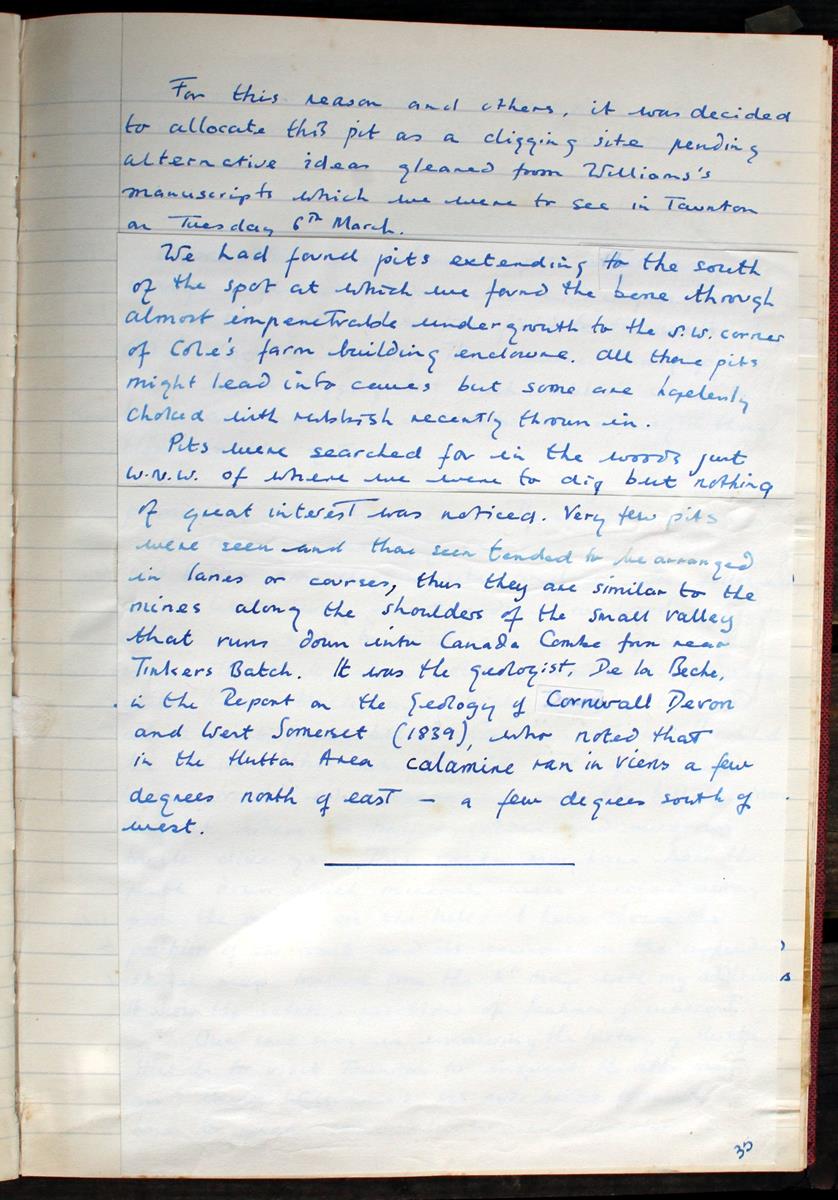 For this reason and others, it was decided
to allocate this pit as a digging site pending
alternative ideas gleaned from Williams's
manuscripts which we were to see in Taunton
on Tuesday 6th March.
We had found pits extending to the south
of the spot at which we found the bone through
almost impenetrable undergrowth to the S.W. corner
of Cole's farm building enclosure. All these pits
might lead into caves but some are hopelessly
choked with rubbish recently thrown in.
Pits were searched for in the woods just
W.N.W. of where we were to dig but nothing
of great interest was noticed. Very few pits
were seen and those seen tended to be arranged
in lanes or courses, thus they are similar to the
mines along the shoulders of the small valley
that runs down into Canada Combe from near
Tinkers Batch. It was the geologist, De la Beche,
in the Report on the Geology of Cornwall Devon
and West Somerset (1839), who noted that
in the Hutton Area calamine ran in viens a few
degrees north of east — a few degrees south of
west.